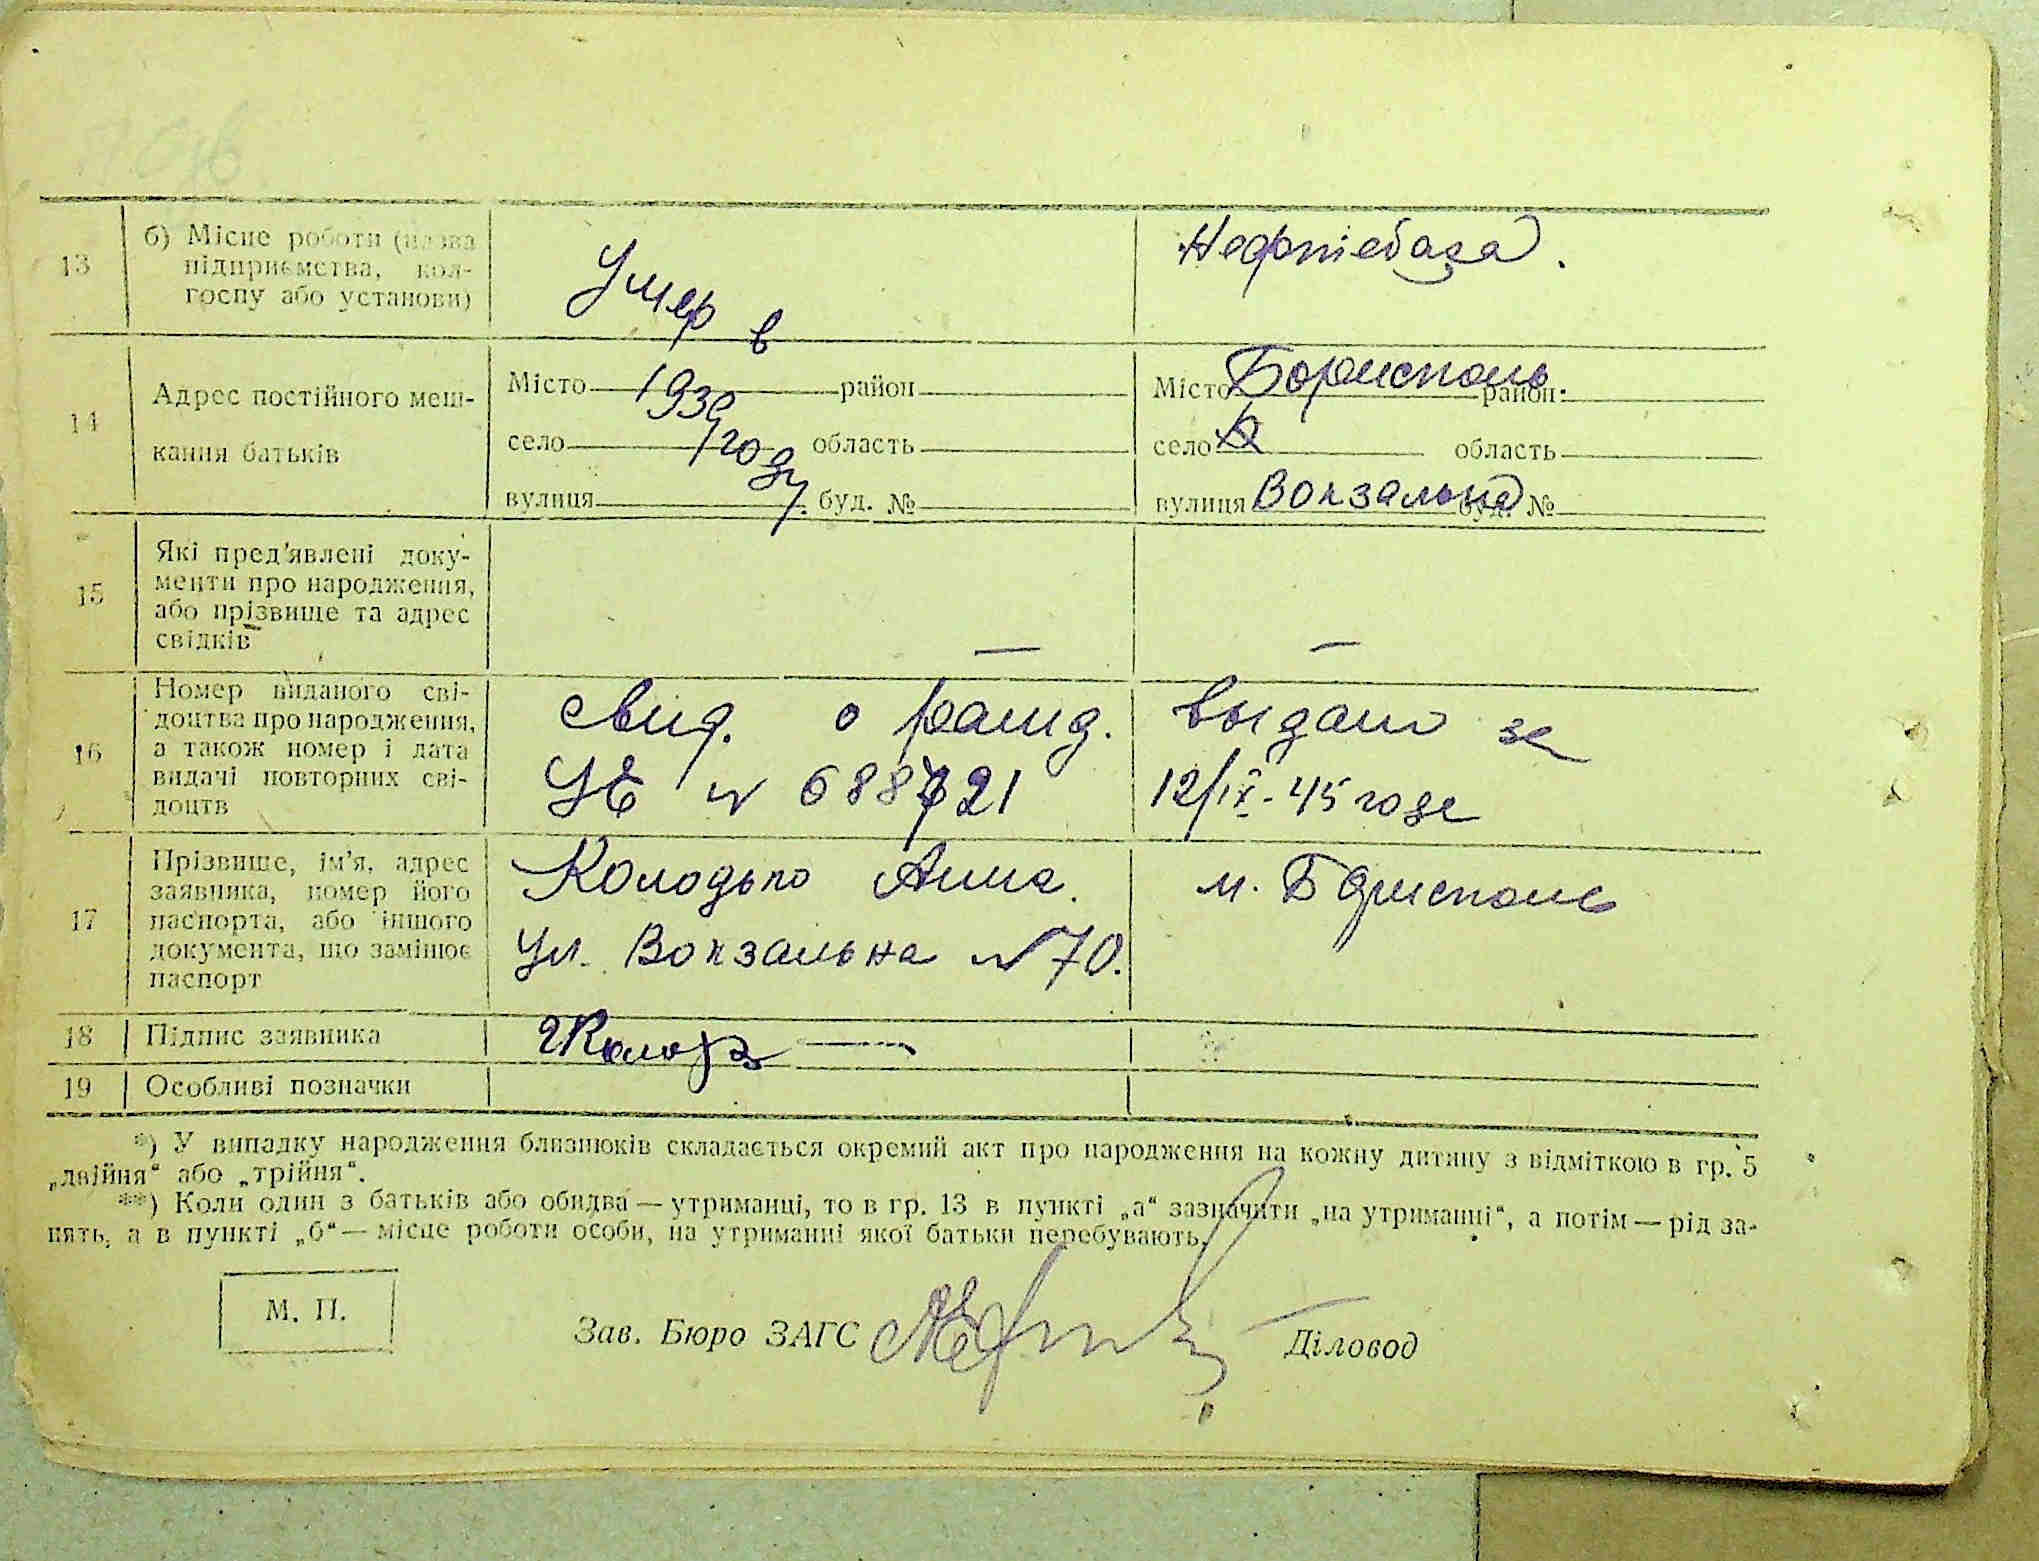 13
б) Місце роботи (назва
підприємства, кол-
госпу або установи)
Умер в
1939
году.
Нефтебаза.
14
Адрес постійного меш-
кання батьків
Місто район
село область
вулиця буд. №
Місто Борисполь район
село область
вулиця Вокзальна буд. №
15
Які пред'явлені доку-
менти про народження,
або прізвище та адрес
свідків
— —
16
Номер виданого сві-
доцтва про народження,
а також номер і дата
видачі повторних сві-
доцтв
свид. о рашд. выдано за
УЄ № 688721 12/IX-45 года
17
Прізвище, ім'я, адрес
заявника, номер його
паспорта, або іншого
документа, що замінює
паспорт
Колодько Анна. м. Борисполь
Ул. Вокзальна №70.
18 Підпис заявника
19 Особливі позначки
*) У випадку народження близнюків складається окремий акт про народження на кожну дитину з відміткою в гр. 5
„двійня“ або „трійня“.
**) Коли один з батьків або обидва — утриманці, то в гр. 13 в пункті „а“ зазначити „на утриманні“, а потім — рід за-
нять, а в пункті „б“ — місце роботи особи, на утриманні якої батьки перебувають.
М. П.
Зав. Бюро ЗАГС Діловод